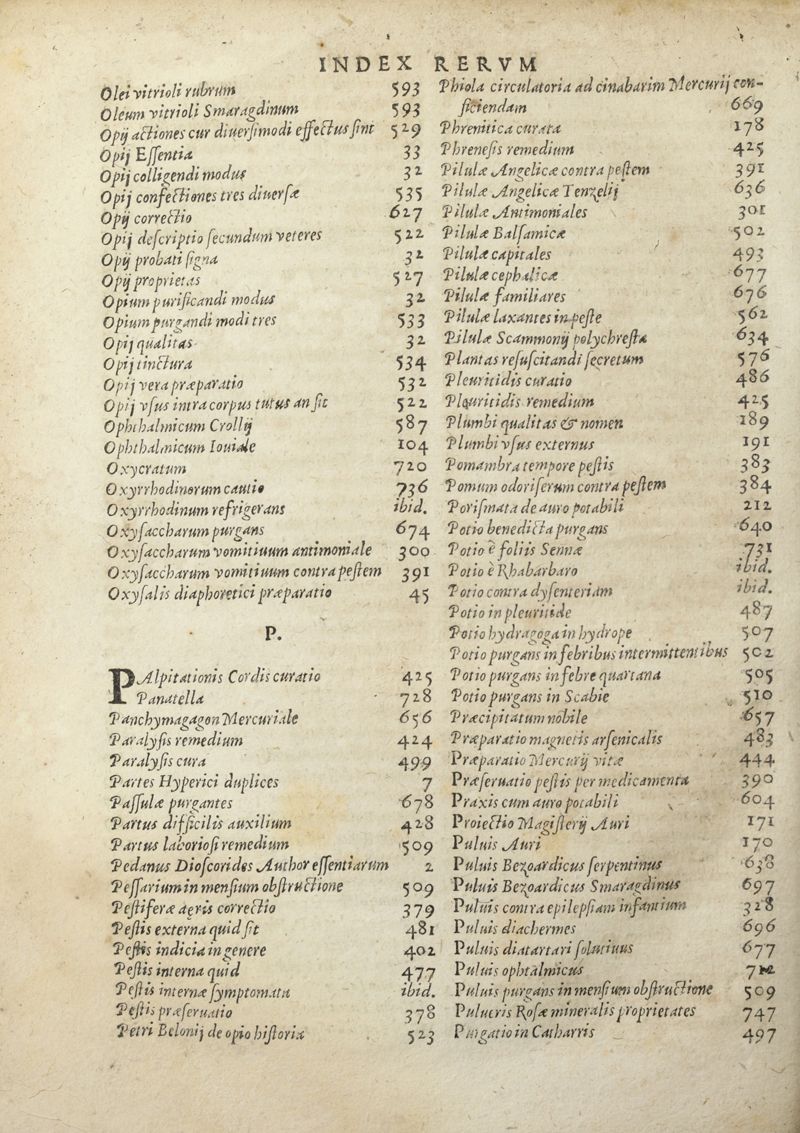 INDEX RERVM
Olei vitrioli rubrum 593
Oleum vitrioli Smaragdinum 593
Opij actiones cur diuersimodi effectus sint 529
Opij Essentia 33
Opij colligendi modus 32
Opij confectiones tres diuersæ 535
Opij correctio 627
Opij descriptio secundum veteres 522
Opij probati signa 32
Opij proprietas 527
Opium purificandi modus 32
Opium purgandi modi tres 533
Opij qualitas 32
Opij tinctura 534
Opij vera præparatio 532
Opij vsus intra corpus tutus an sit 522
Ophthalmicum Crollij 587
Ophthalmicum Iouiale 104
Oxycratum 720
Oxyrrhodinorum cautio 736
Oxyrrhodinum refrigerans ibid.
Oxysaccharum purgans 674
Oxysaccharum vomitiuum antimoniale 300
Oxysaccharum vomitiuum contra pestem 391
Oxysalis diaphoretici præparatio 45
P.
PAlpitationis Cordis curatio 425
Panatella 728
Panchymagagon Mercuriale 656
Paralysis remedium 424
Paralysis cura 499
Partes Hyperici duplices 7
Passulæ purgantes 678
Partus difficilis auxilium 428
Partus laboriosi remedium 509
Pedanus Dioscorides Author essentiarum 2
Pessarium in mensium obstructione 509
Pestiferæ aeris correctio 379
Pestis externa quid sit 481
Pestis indicia in genere 402
Pestis interna quid 477
Pestis internæ symptomata ibid.
Pestis præseruatio 378
Petri Belonij de opio historia 523
Phiola circulatoria ad cinabarim Mercurij con-
ficiendam 669
Phrenitica curata 178
Phrenesis remedium 425
Pilulæ Angelicæ contra pestem 391
Pilulæ Angelicæ Tenzelij 636
Pilulæ Antimoniales 301
Pilulæ Balsamicæ 502
Pilulæ capitales 493
Pilulæ cephalicæ 677
Pilulæ familiares 676
Pilulæ laxantes in peste 562
Pilulæ Scammonij polychresta 634
Plantas resuscitandi secretum 576
Pleuritidis curatio 486
Pleuritidis remedium 425
Plumbi qualitas & nomen 189
Plumbi vsus externus 191
Pomambra tempore pestis 383
Pomum odoriferum contra pestem 384
Porismata de auro potabili 212
Potio benedicta purgans 640
Potio è foliis Sennæ 731
Potio è Rhabarbaro ibid.
Potio contra dysenteriam ibid.
Potio in pleuritide 487
Potio hydragoga in hydrope 507
Potio purgans in febribus intermittentibus 502
Potio purgans in febre quartana 505
Potio purgans in Scabie 510
Præcipitatum nobile 657
Præparatio magnetis arsenicalis 483
Præparatio Mercurij vitæ 444
Præseruatio pestis per medicamenta 390
Praxis cum auro potabili 604
Proiectio Magisterij Auri 171
Puluis Auri 170
Puluis Bezoardicus serpentinus 638
Puluis Bezoardicus Smaragdinus 697
Puluis contra epilepsiam infantium 328
Puluis diachermes 696
Puluis diatartari solutiuus 677
Puluis ophtalmicus
Puluis purgans in mensium obstructione 509
Pulueris Rosæ mineralis proprietates 747
Purgatio in Catharris 497